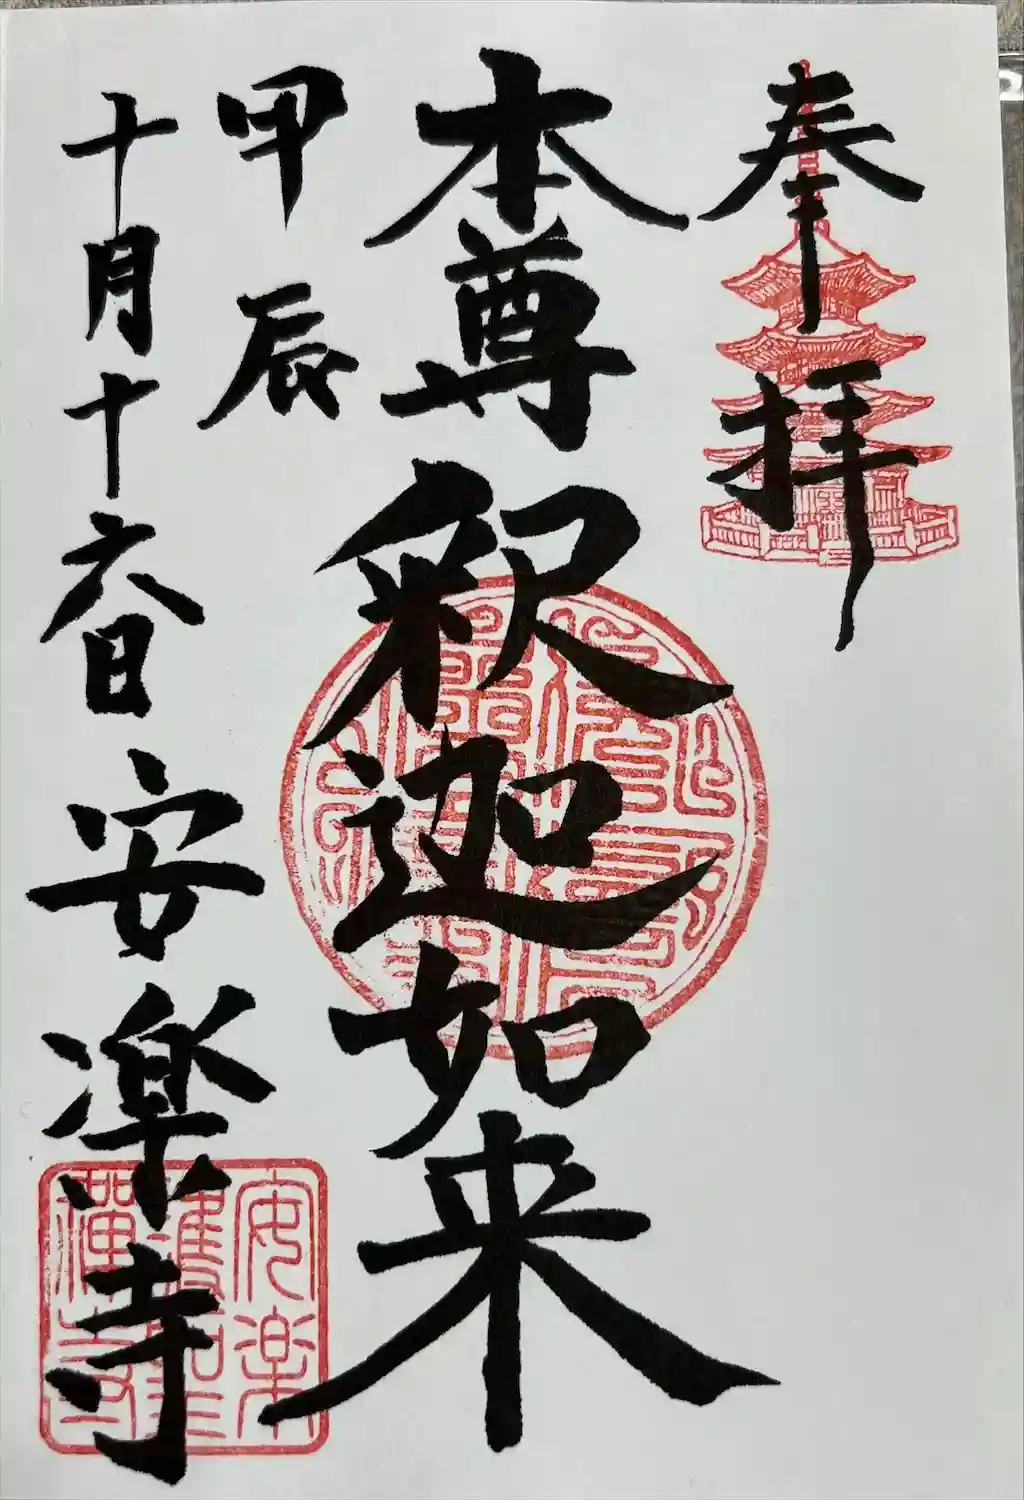 奉拝
本尊釈迦如来
甲辰
十月十六日安楽寺
安楽
護聖
禅寺